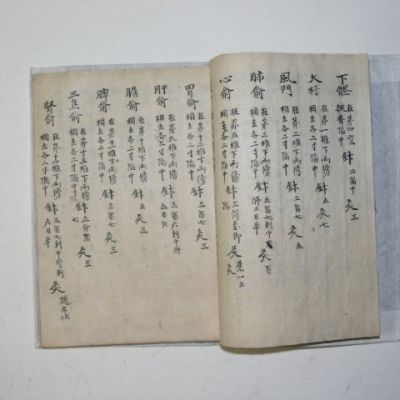 下髎 在第四空 挾脊陷中 鍼 二留十 灸三
大杼 在第一椎下兩傍 相去各二寸陷中 鍼五 灸七
風門 在第二椎下兩傍 相去各二寸陷中 鍼五留七 灸五
肺俞 在第三椎下兩傍 相去各二寸陷中 鍼 灸百
心俞 在第五椎下兩傍 相去各二寸陷中 鍼三 灸
胃俞 在第十二椎下兩傍 相去各二寸陷中 鍼三留七 灸三
肝俞 在第九椎下兩傍 相去各二寸陷中 鍼三留六 灸三
膽俞 在第十椎下兩傍 相去各二寸陷中 鍼五 灸三
脾俞 在第十一椎下兩傍 相去各二寸陷中 鍼三留七 灸三
三焦俞 在第十三椎下兩傍 相去各二寸陷中 鍼 灸三
腎俞 在第十四椎下兩傍 相去各二寸陷中 鍼三留七 灸隨年壯